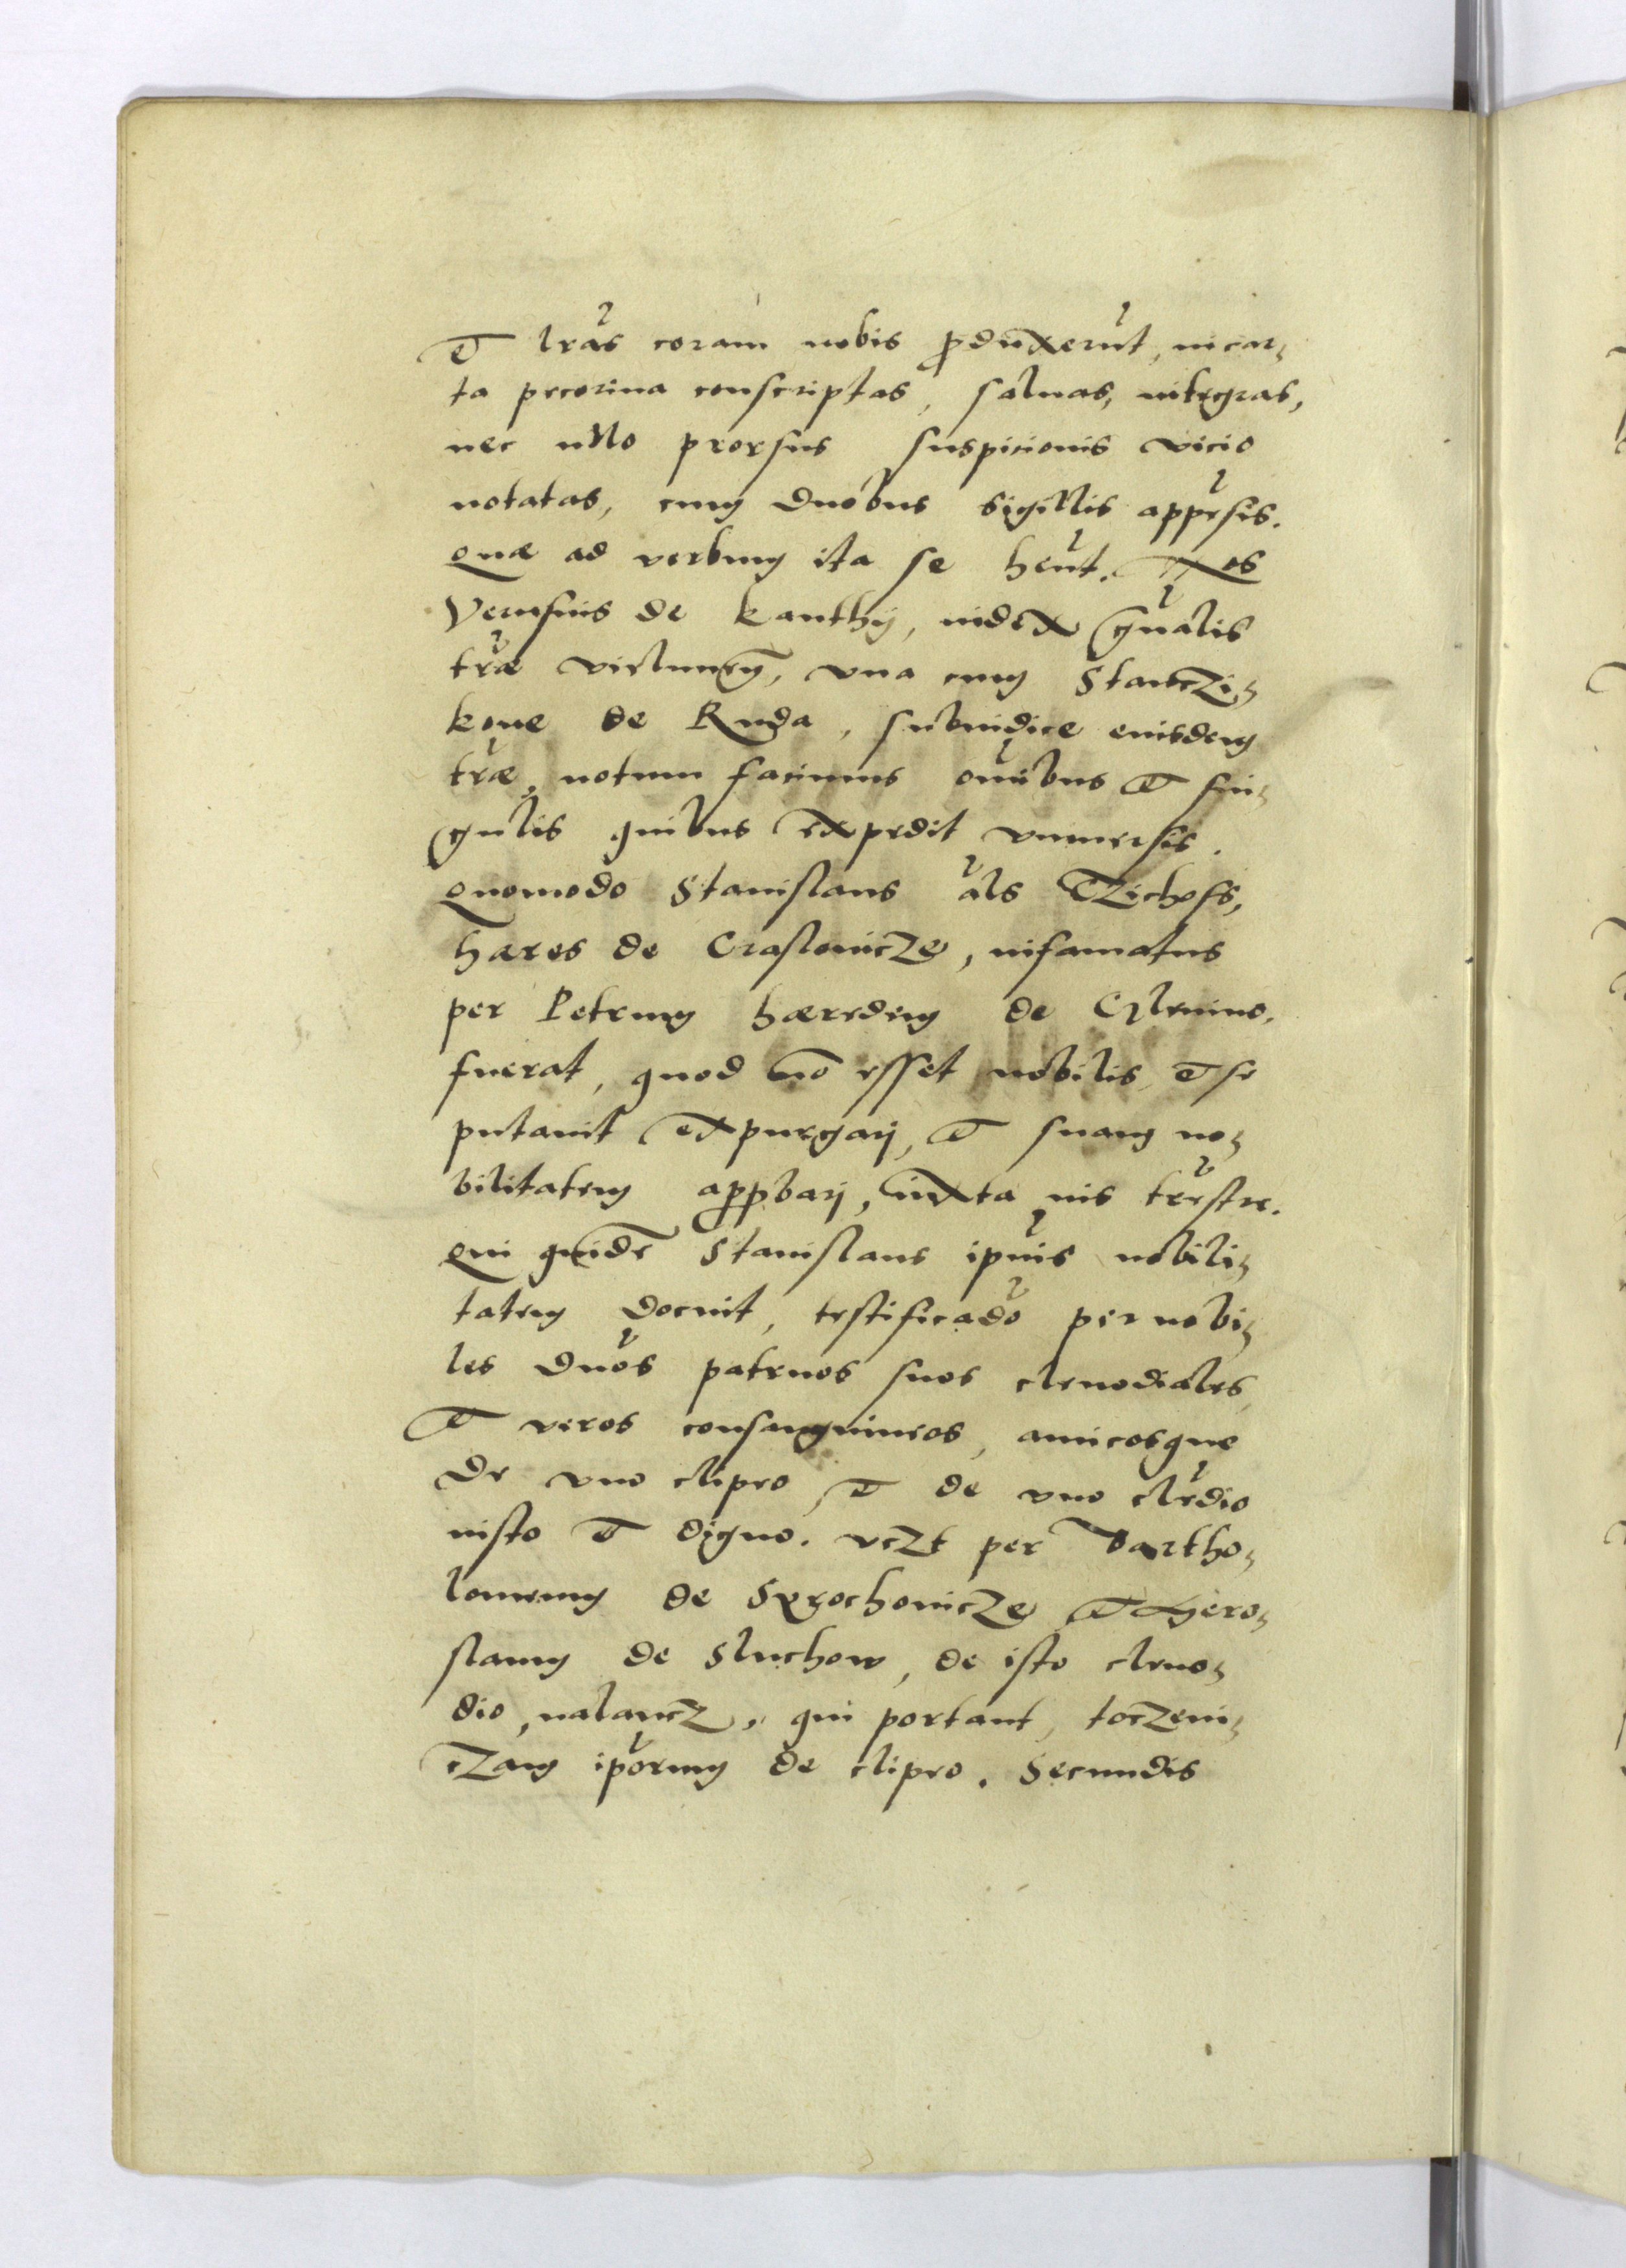 et lras coram nobis produxerut, in car-
ta pecorina conscriptas, saluas, integras,
nec ullo prorsus suspicionis vicio
notatas, cum duobus sigillis appesis.
quæ ad verbum ita se hent. Nos
Vernsius de Kanthy, iudex gnalis
træ vielunen, vna cum Stanczi-
kone de Ruda, subiudice eiusdem
træ, notum facimus omibus et sin-
gulis quibus expedit vniuersis.
quomodo Stanislaus als Czichoss,
hæres de Craslouicze, infamatus
per Petrum hæredem de
fuerat, quod no esset nobilis, et se
putauit expurgarj, et suam no-
bilitatem approbarj, iuxta ius trestre.
qui quide Stanislaus ipius nobili-
tatem docuit, testificado per nobi-
les duos patruos suos clenodiales,
et veros consanguineos, amicosque
de vno clipeo, et de vno cledio
iusto et digno. vczt per Bartho-
lomeum de Syrochouicze et Hiero-
slaum de Sluchow, de isto cleno-
dio, nalancz, qui portant, toczeni-
czam iporum de clipeo. Secundis